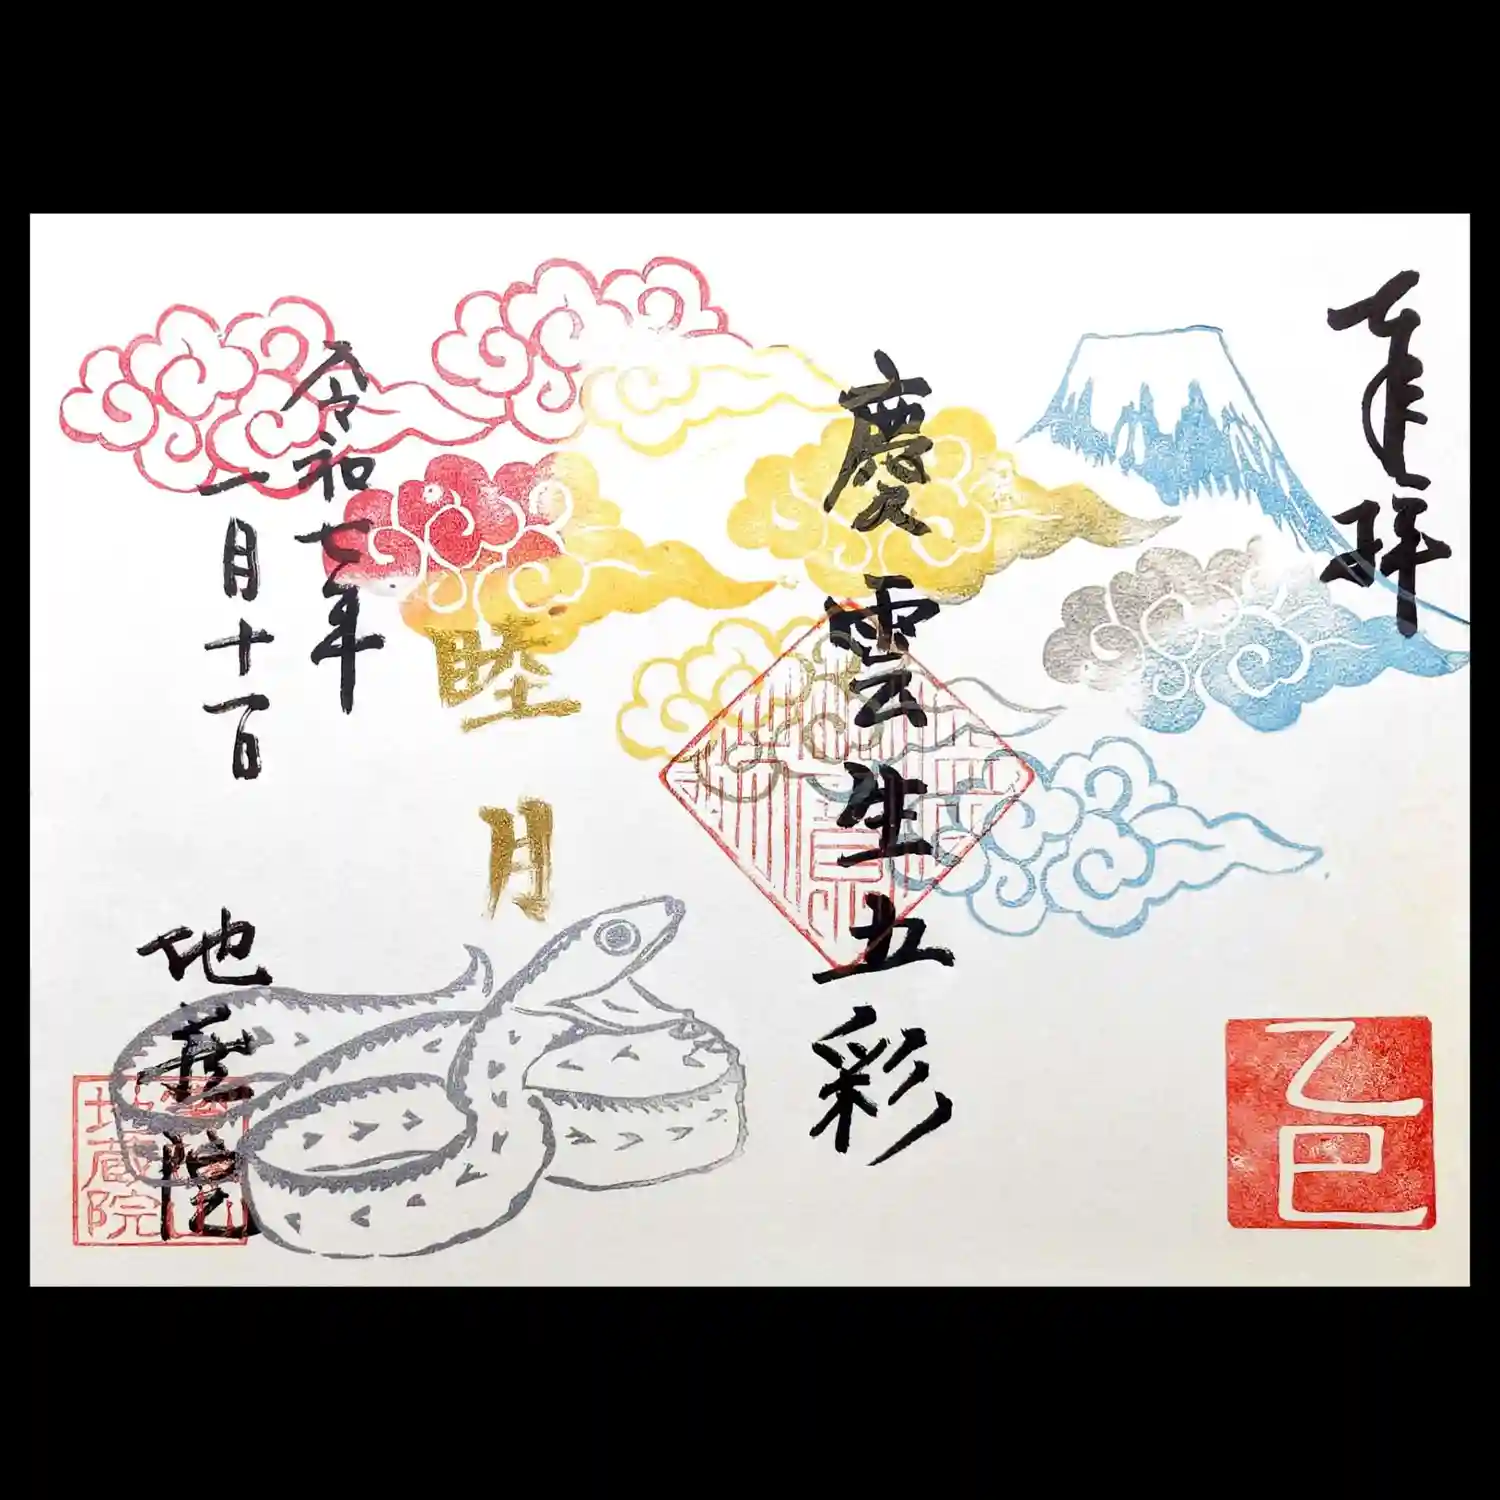 奉拝
乙巳
慶雲生五彩
睦月
令和七年
一月十一日
地蔵院
地蔵院